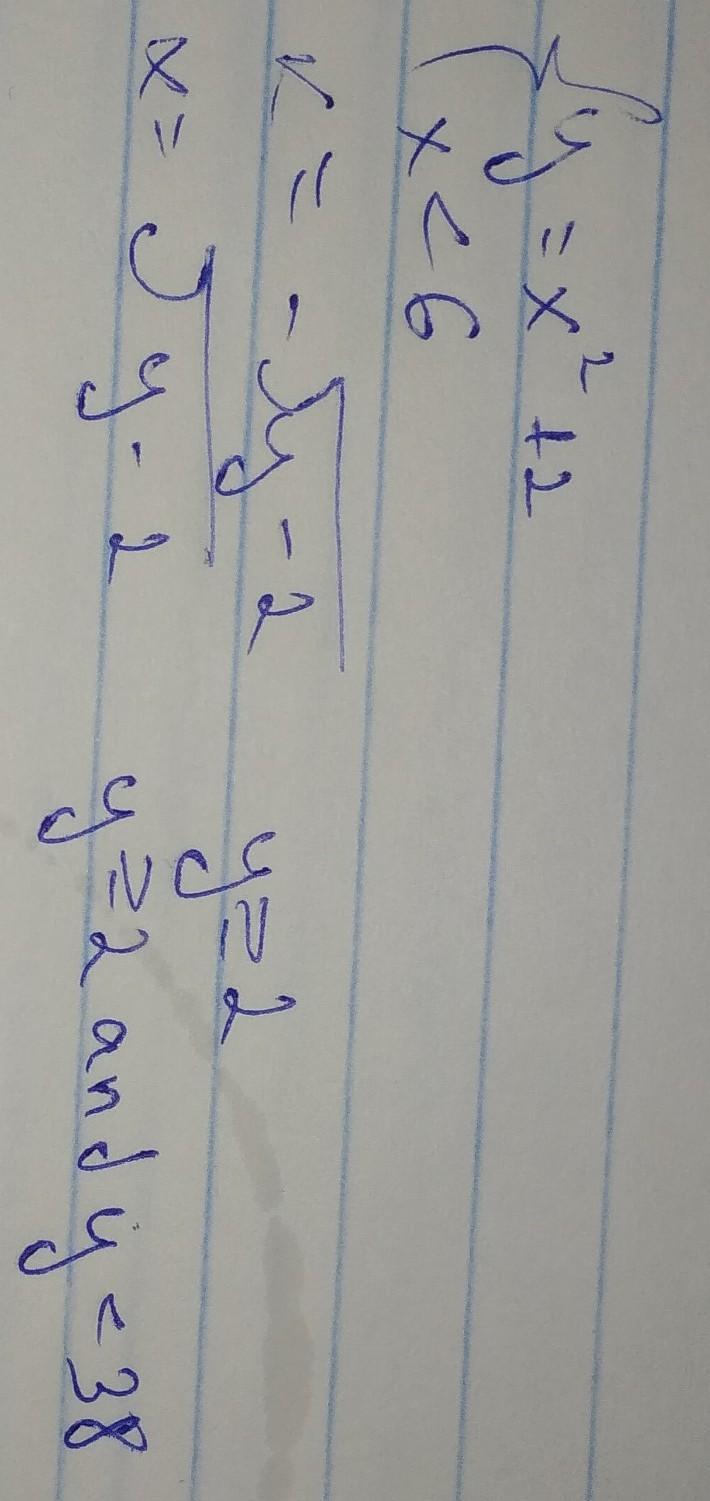 { y = x² + 2
x < 6
x = - √y - 2 y ≥ 2
x = √y - 2 y ≥ 2 and y < 38